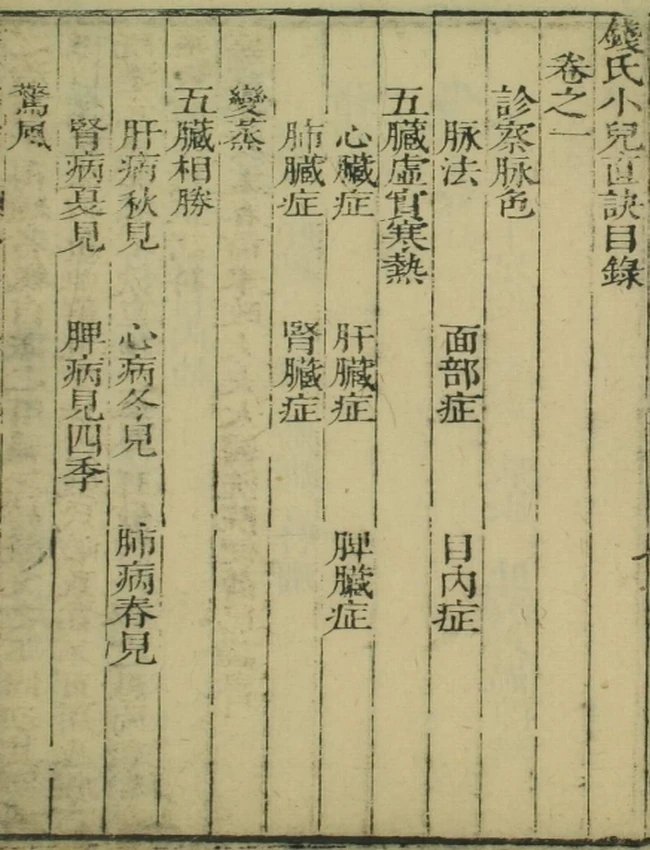 錢氏小兒直訣目錄
卷之一
診察脉色
脉法 面部症 目內症
五臟虛實寒熱
心臟症 肝臟症 脾臟症
肺臟症 腎臟症
變蒸
五臟相勝
肝病秋見 心病冬見 肺病春見
腎病夏見 脾病見四季
驚風